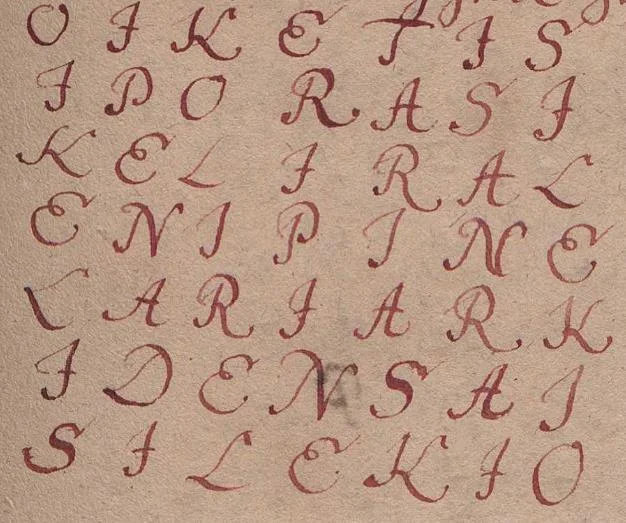 O I K E T I S
I P O R A S I
K E L I R A L
E N I P I N E
L A R I A R K
I D E N S A I
S I L E K I O